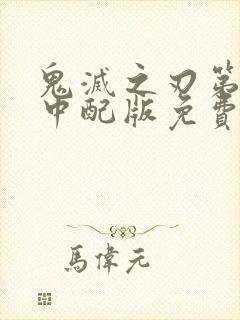 鬼滅之刃第
中配版免費
馬偉元